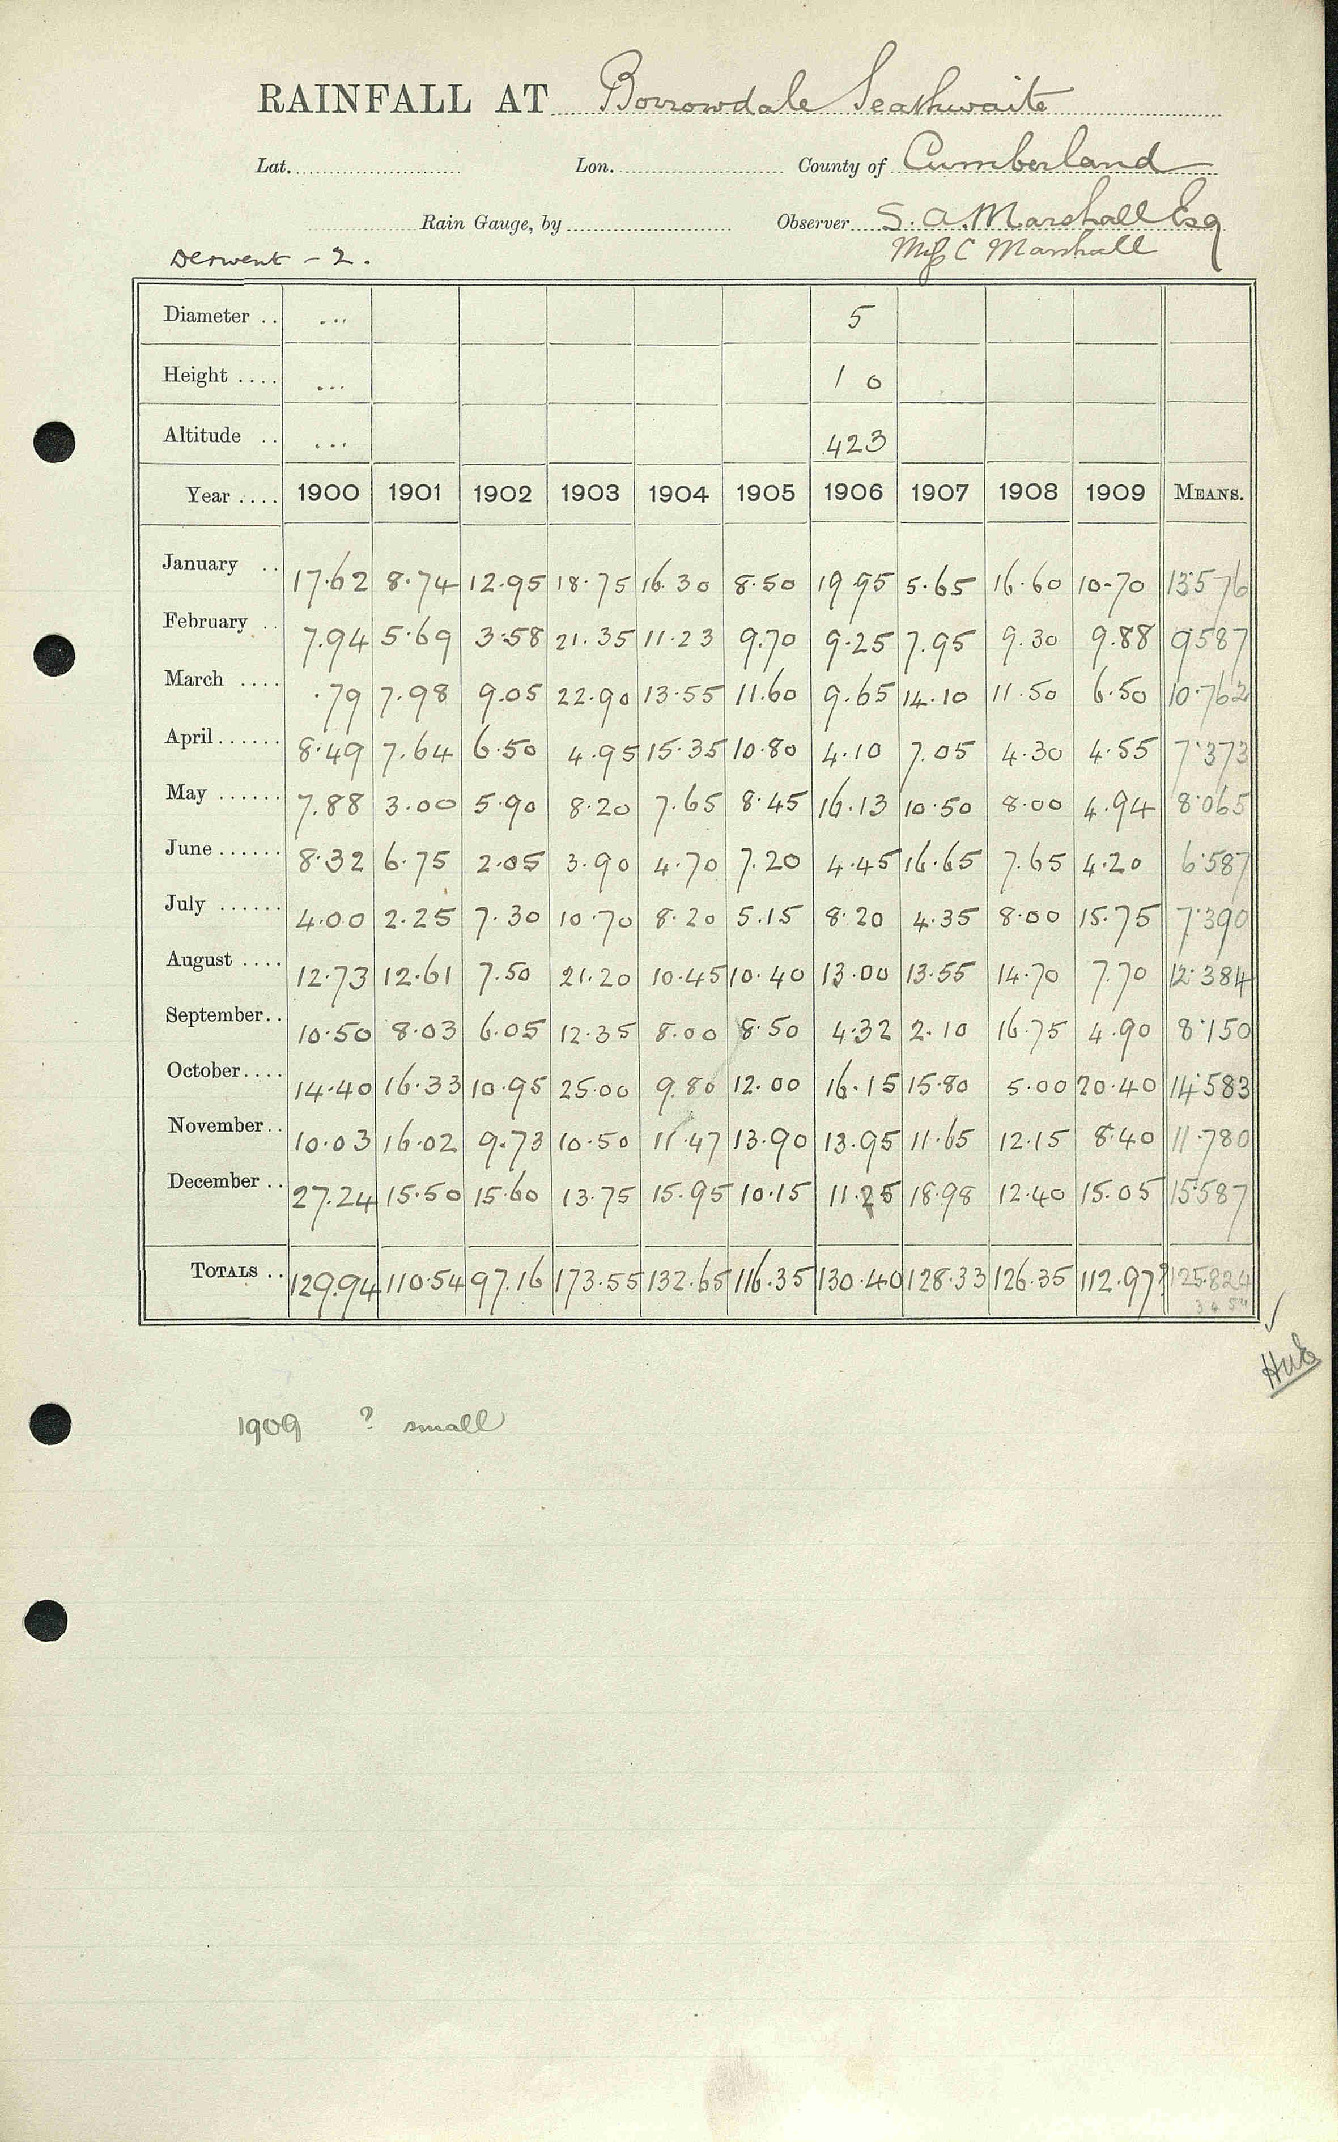 RAINFALL AT Borrowdale Seathwaite
Lat. Lon. County of Cumberland
Rain Gauge, by Observer S. A. Marshall Esq
Derwent - 2. Miss C Marshall
Diameter .. ... 5
Height .... ... 1 0
Altitude .. ... 423
Year .... 1900 1901 1902 1903 1904 1905 1906 1907 1908 1909 MEANS.
January .. 17.62 8.74 12.95 18.75 16.30 8.50 19.95 5.65 16.60 10.70 13.576
February .. 7.94 5.69 3.58 21.35 11.23 9.70 9.25 7.95 9.30 9.88 9.587
March .... .79 7.98 9.05 22.90 13.55 11.60 9.65 14.10 11.50 6.50 10.762
April ...... 8.49 7.64 6.50 4.95 15.35 10.80 4.10 7.05 4.30 4.55 7.373
May ...... 7.88 3.00 5.90 8.20 7.65 8.45 16.13 10.50 8.00 4.94 8.065
June ...... 8.32 6.75 2.05 3.90 4.70 7.20 4.45 16.65 7.65 4.20 6.587
July ...... 4.00 2.25 7.30 10.70 8.20 5.15 8.20 4.35 8.00 15.75 7.390
August .... 12.73 12.61 7.50 21.20 10.45 10.40 13.00 13.55 14.70 7.70 12.384
September.. 10.50 8.03 6.05 12.35 8.00 8.50 4.32 2.10 16.75 4.90 8.150
October.... 14.40 16.33 10.95 25.00 9.80 12.00 16.15 15.80 5.00 20.40 14.583
November.. 10.03 16.02 9.73 10.50 11.47 13.90 13.95 11.65 12.15 8.40 11.780
December .. 27.24 15.50 15.60 13.75 15.95 10.15 11.25 18.98 12.40 15.05 15.587
TOTALS .. 129.94 110.54 97.16 173.55 132.65 116.35 130.40 128.33 126.35 112.97? 125.824
1909 ? small